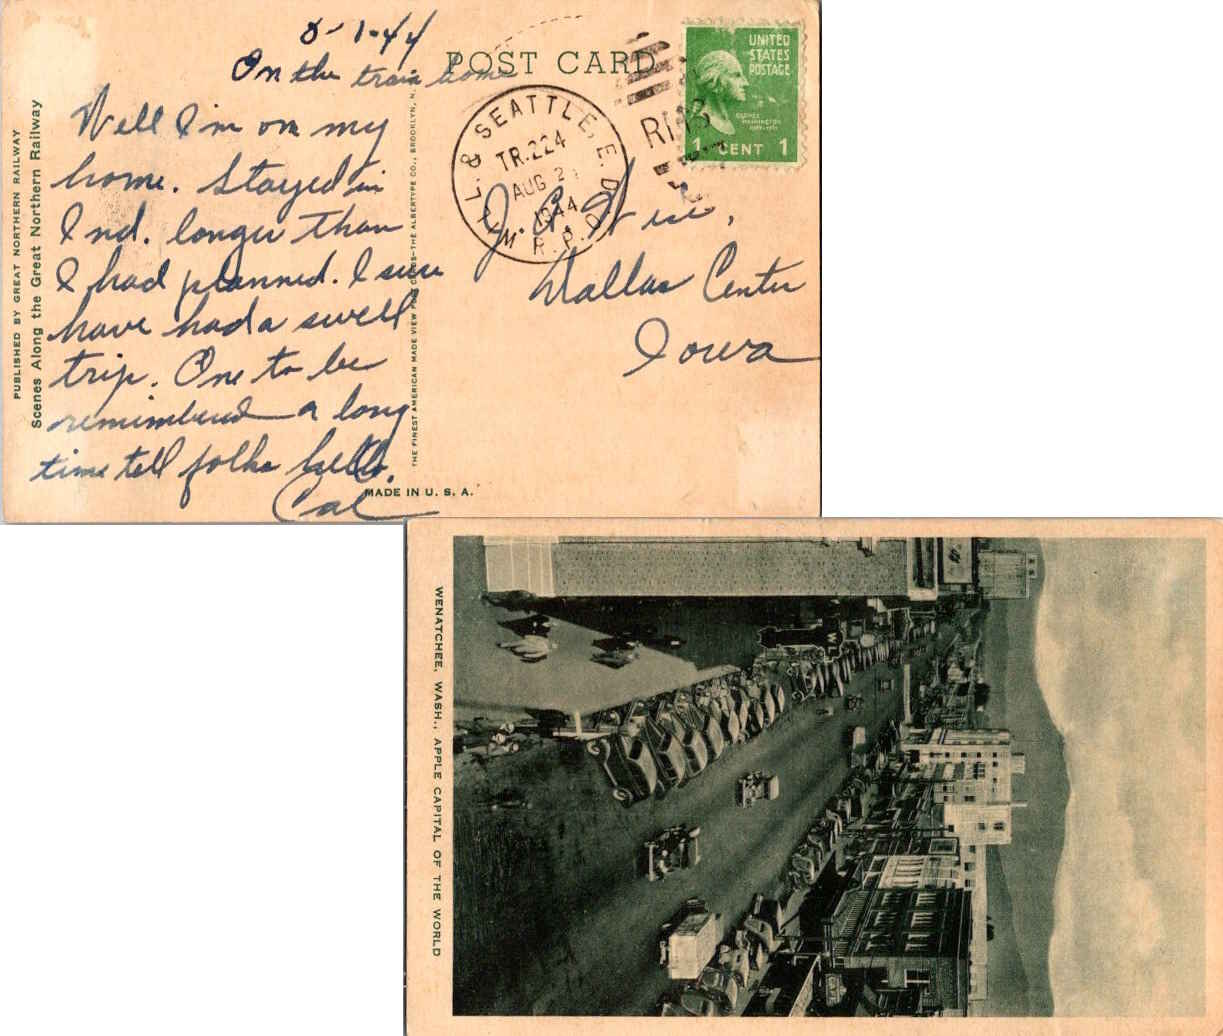 8-1-44
On the train home
Well I'm on my
home. Stayed in
Ind. longer than
I had planned. I sure
have had a swell
trip. One to be
remembered a long
time tell folks hello.
Cal
POST CARD
PUBLISHED BY GREAT NORTHERN RAILWAY
Scenes Along the Great Northern Railway
THE FINEST AMERICAN MADE VIEW POST CARDS—THE ALBERTYPE CO., BROOKLYN, N.
MADE IN U. S. A.
WILL. & SEATTLE, E. D.
TR. 224
AUG 2
1944
R. P. O.
UNITED
STATES
POSTAGE
GEORGE
WASHINGTON
1 CENT 1
J. A. Wise,
Dallas Center
Iowa
WENATCHEE, WASH., APPLE CAPITAL OF THE WORLD